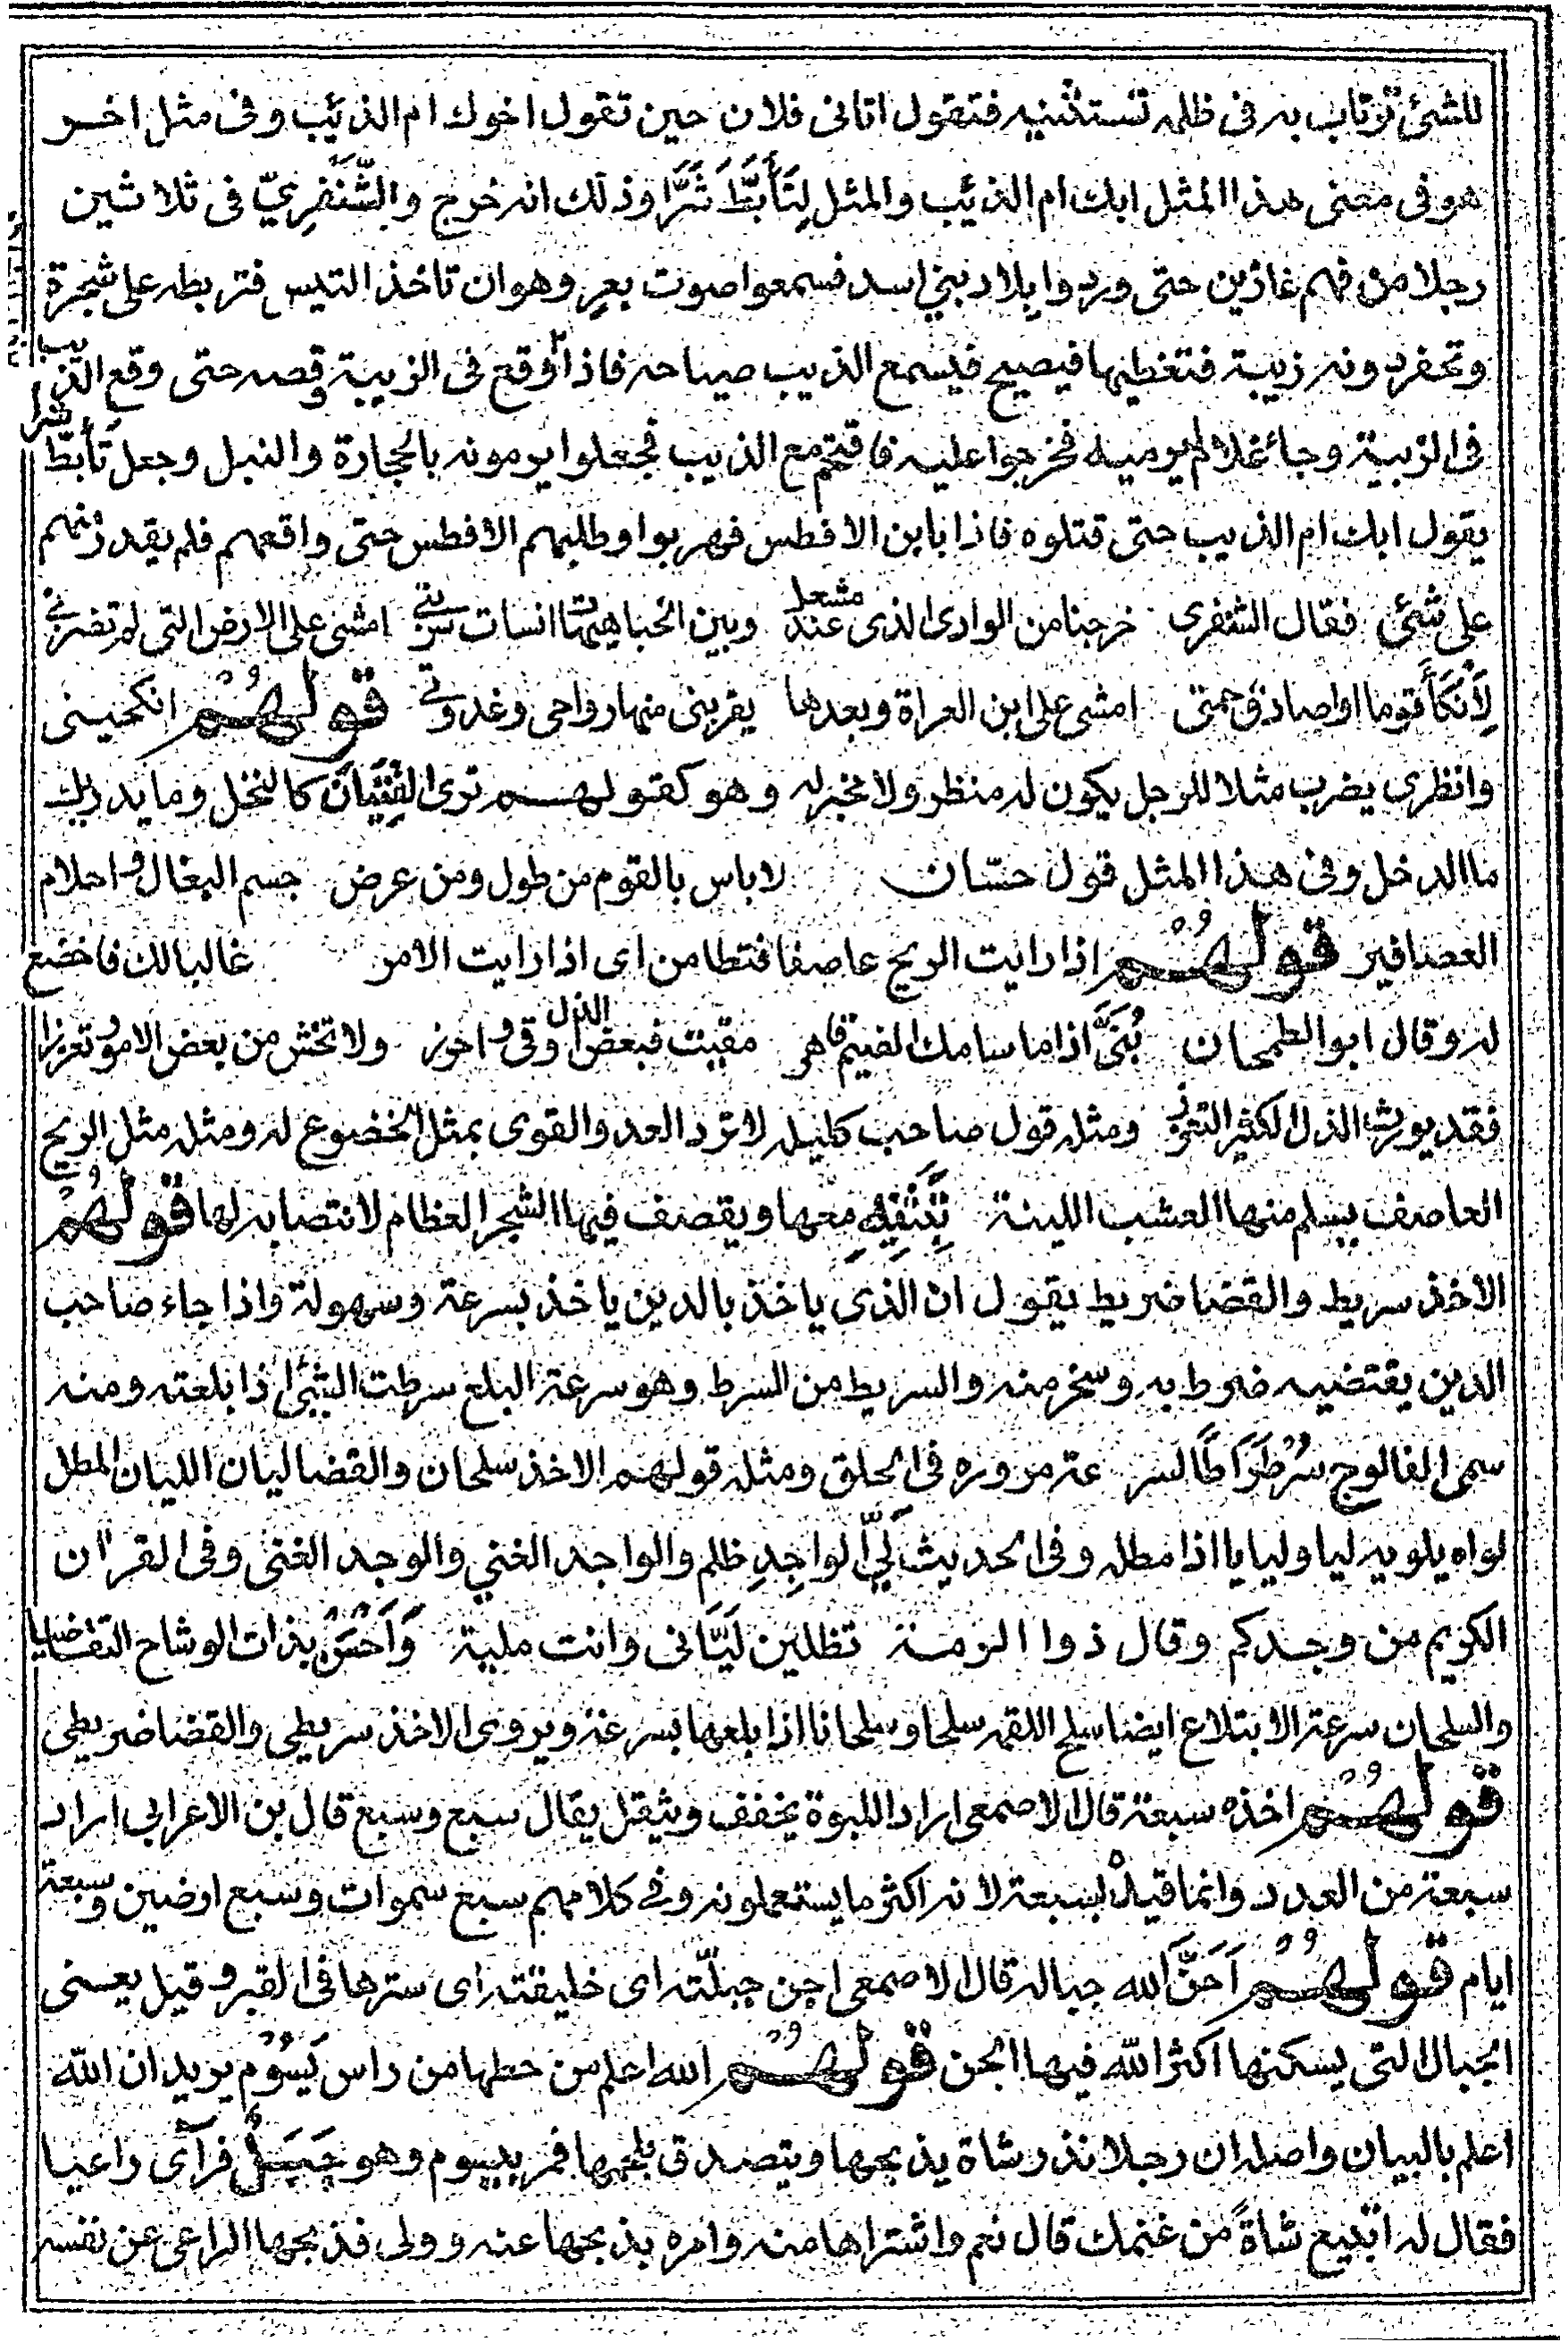 للشئ ترتاب به فى ظلمه تستثنيه فتقول اتانى فلان حين تقول اخوك ام الذئيب وفى مثل اخر
هو فى معنى هذا المثل ابك ام الذئيب والمثل لِتَأَبَّطَ شَرًّا وذلك انه خرج والشَّنْفِرىّ فى ثلاثين
رجلا من فهم غازين حتى وردوا بلاد بنى اسد فسمعوا صوت بعرٍ وهو ان تاخذ التيس فتربطه على شجرة
وتحفر دونه زبية فتغطيها فيصيح فيسمع الذيب صياحه فاذا وقع فى الزبية وقصه حتى وقع الذيب
فى الزبية وجائ غلام يرميه فخرجوا عليه فاقتحم مع الذيب فجعلوا يرمونه بالحجارة والنبل وجعل تَأبطّ شرا
يقول ابك ام الذيب حتى قتلوه فاذا بابن الافطس فهربوا وطلبهم الافطس حتى واقعهم فلم يقدر منهم
على شئى فقال الشنفرى خرجنا من الوادى الذى عند مشعل وبين الحبا هيهات انسات سربتى امشى على الارض التى لم تضرنى
لِأَنكَأَ قوما او اصادف حمتى امشى على ابن العراة وبعدها يقربنى منها رواحى وغدوتى قولهُم انكحينى
وانظرى يضرب مثلا للرجل يكون له منظر ولا مخبر له وهو كقولهم ترى الفِتْيَانَ كالنخل وما يدريك
ما الدخل وفى هذا المثل قول حسّان لا باس بالقوم من طول ومن عرض جسم البغال و احلام
العصافير قولهُم اذا رايت الريح عاصفا فتطامن اى اذا رايت الامر غالبا لك فاخضع
له وقال ابو الطمحان بُنَىَّ اذا ما سامك الضيم قاهر مقيت فبعض الذل وقى و احرز ولا تخش من بعض الامور تعززا
فقد يورث الذل الكثير التعزز ومثله قول صاحب كليله لا ترد العدو القوى بمثل الخضوع له ومثله مثل الريح
العاصف يسلم منها العشب اللينة تَنثنِى معها ويقصف فيها الشجر العظام لانتصابه لها قولهُم
الاخذ سريط والقضا ضريط يقول ان الذى ياخذ بالدين ياخذ بسرعة وسهولة واذا جاء صاحب
الدين يقتضيه ضرط به وسخر منه والسريط من السرط وهو سرعة البلع سرطت الشئى اذا بلعته ومنه
سمى الفالوج سُرْطَرَاطًا لسرعة مروره فى الحلق ومثله قولهم الاخذ سلحان والقضا ليان الليان المطل
لواه يلويه ليا وليايا اذا مطله وفى الحديث لَىُّ الواجِدِ ظلم والواجد الغنى والوجد الغنى وفى القران
الكريم من وجدكم وقال ذوا الرمة تظلين لَيَّانى وانت ملية وَاَحْسَنُ بذات الوشاح التقاضيا
والسلحان سرعة الابتلاع ايضا سلح اللقمه سلحا وسلحانا اذا بلعها بسرعة ويروى الاخذ سريطى والقضا ضريطى
قولهُم اخذه سبعة قال الاصمعى اراد اللبوة يخفف ويثقل يقال سبع وسبع قال بن الاعرابى اراد
سبعة من العدد وانما قيل بسبعة لانه اكثر ما يستعملونه وفى كلامهم سبع سموات وسبع ارضين وسبعة
ايام قولهُم اَجَنَّ الله جباله قال الاصمعى اجن جبلّته اى خليقته اى سترها فى القبر و قيل يعنى
الجبال التى يسكنها اكثر الله فيها الجن قولهُم الله اعلم من حطها من راس يَسُوْم يريد ان الله
اعلم بالبيان واصله ان رجلا نذر شاة يذبحها ويتصدق بلحمها فمر بيسوم وهو جَبَلٌ فرآى راعيا
فقال له اتبيع شاةً من غنمك قال نعم واشتراها منه وامره بذبحها عنه وولى فذبحها الراعى عن نفسه